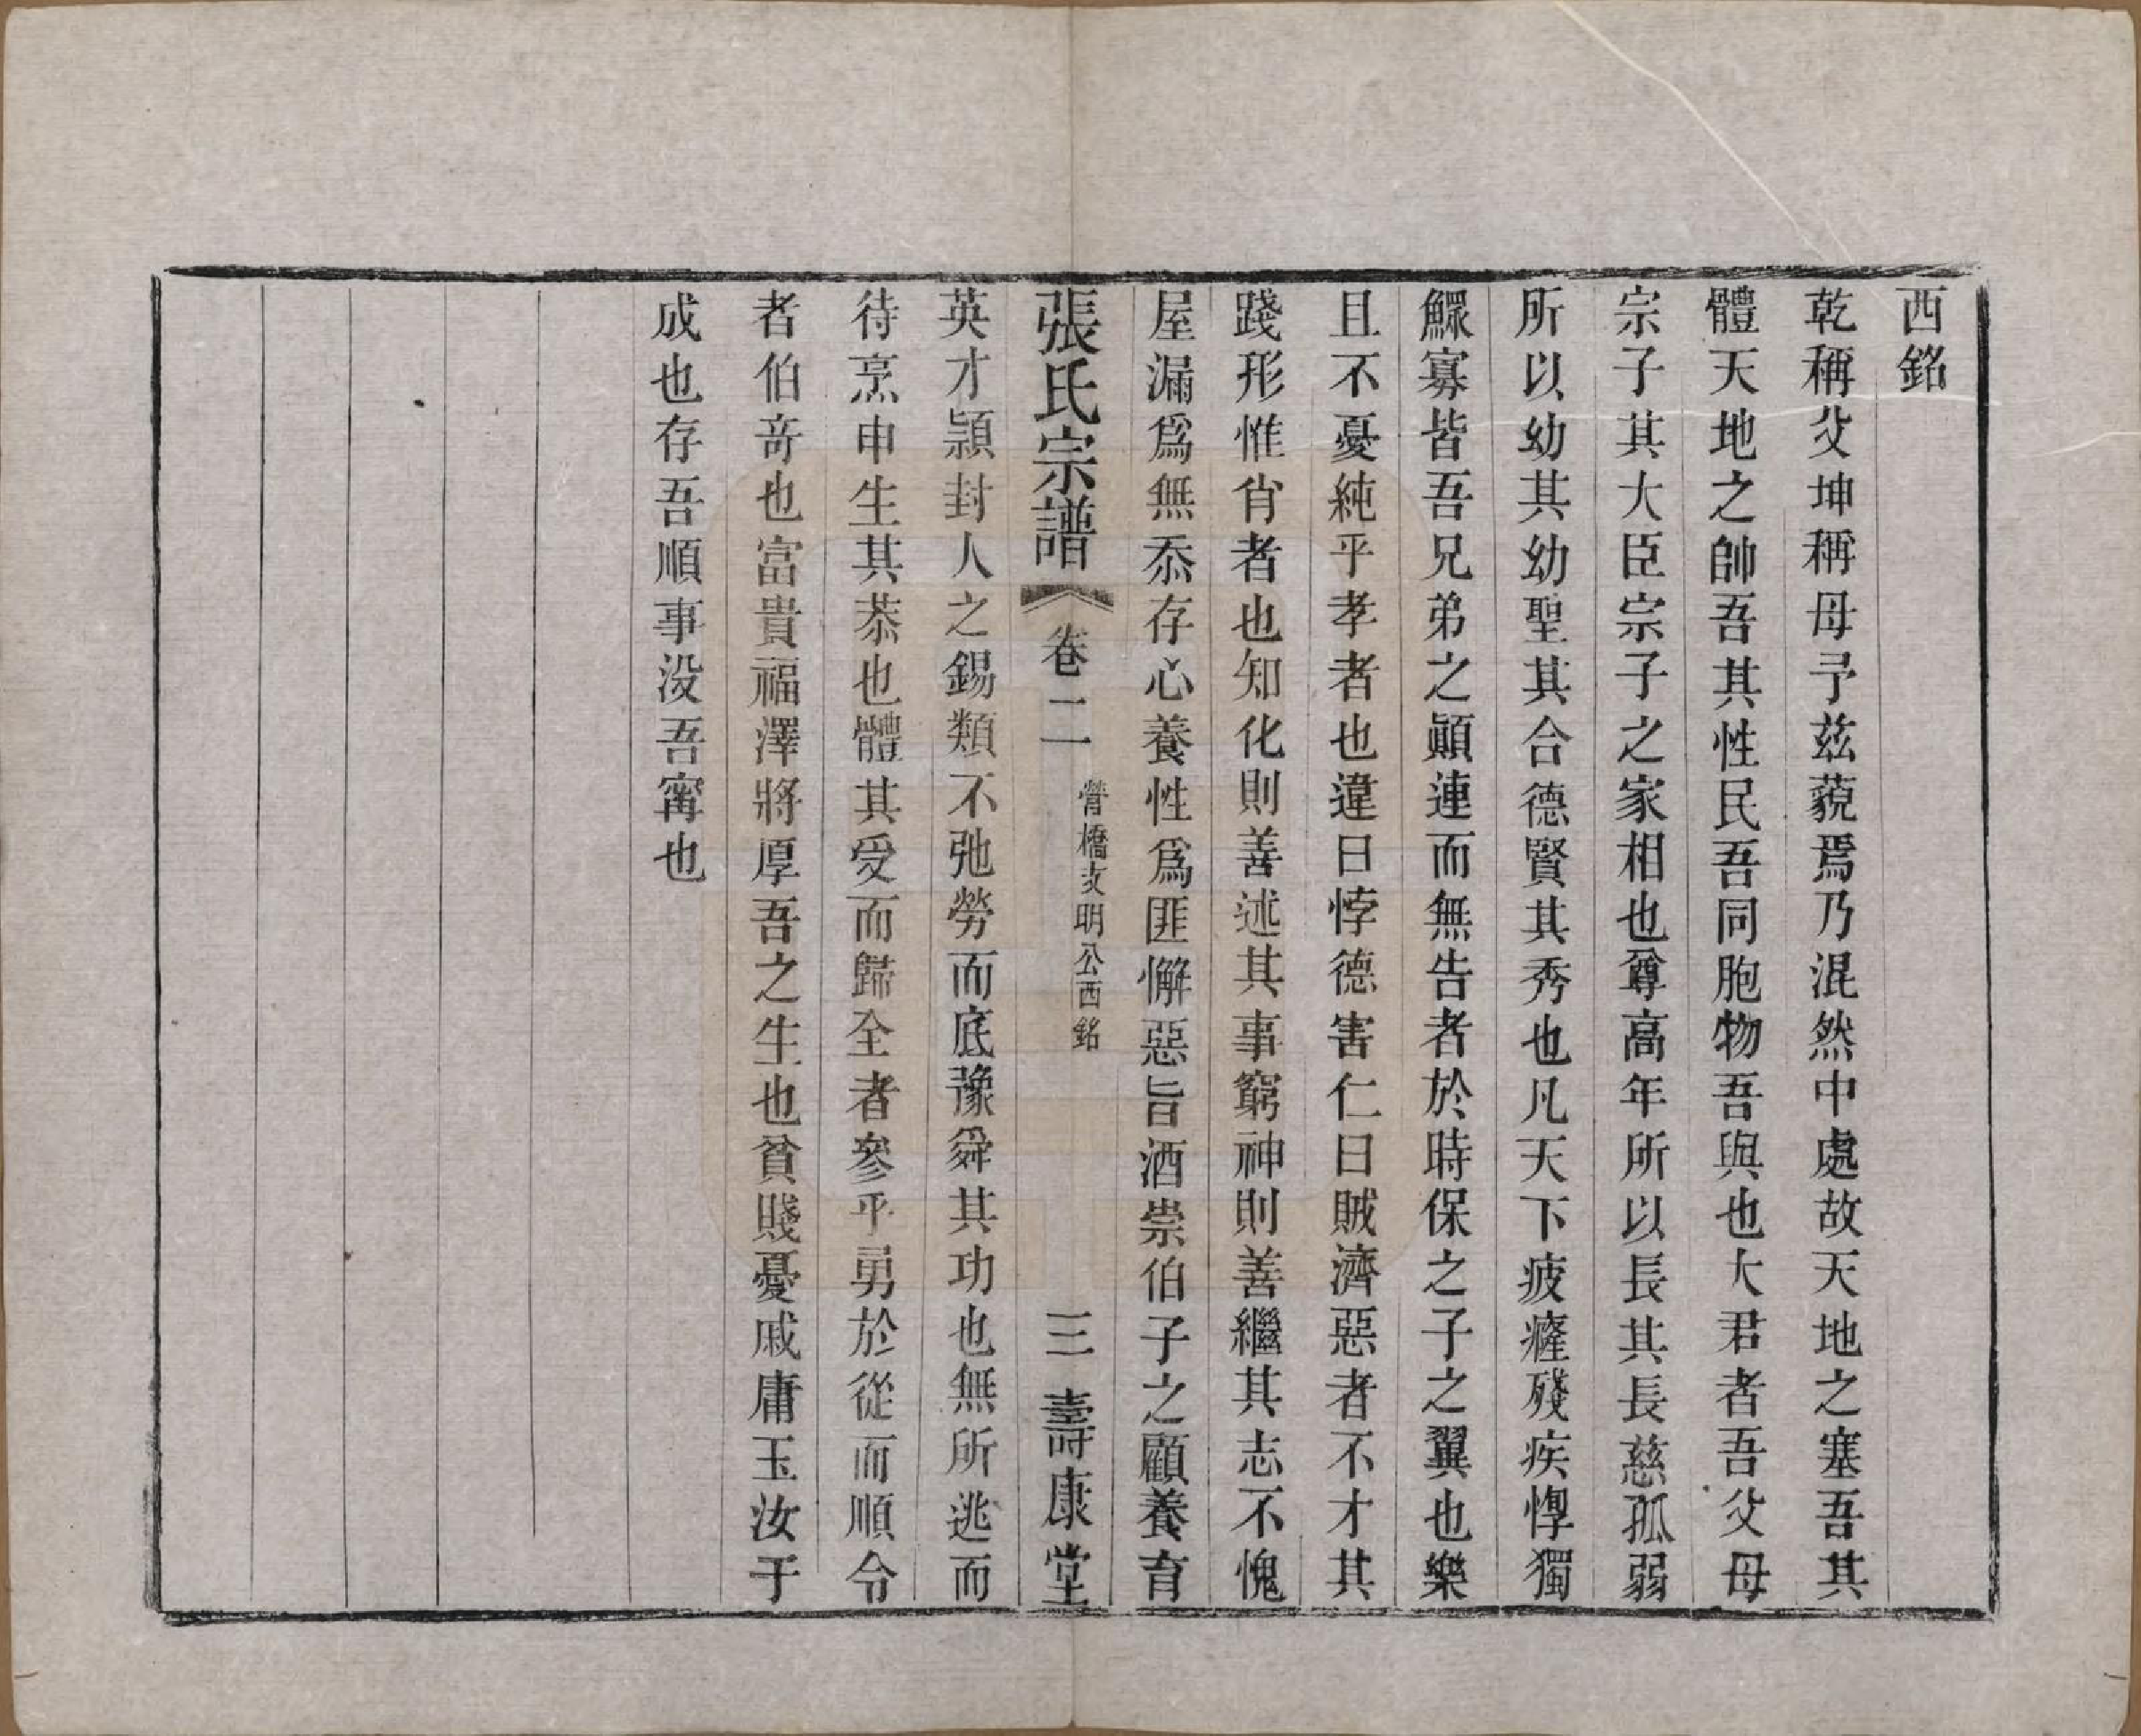 西銘
乾稱父坤稱母予茲藐焉乃混然中處故天地之塞吾其
體天地之帥吾其性民吾同胞物吾與也大君者吾父母
宗子其大臣宗子之家相也尊高年所以長其長慈孤弱
所以幼其幼聖其合德賢其秀也凡天下疲癃殘疾惸獨
鰥寡皆吾兄弟之顚連而無告者於時保之子之翼也樂
且不憂純乎孝者也違曰悖德害仁曰賊濟惡者不才其
踐形惟肖者也知化則善述其事窮神則善繼其志不愧
屋漏爲無忝存心養性爲匪懈惡旨酒崇伯子之顧養育
張氏宗譜 卷二 營橋支明公西銘 三 壽康堂
英才潁封人之錫類不弛勞而底豫舜其功也無所逃而
待烹申生其恭也體其受而歸全者參乎勇於從而順令
者伯奇也富貴福澤將厚吾之生也貧賤憂戚庸玉汝于
成也存吾順事没吾甯也